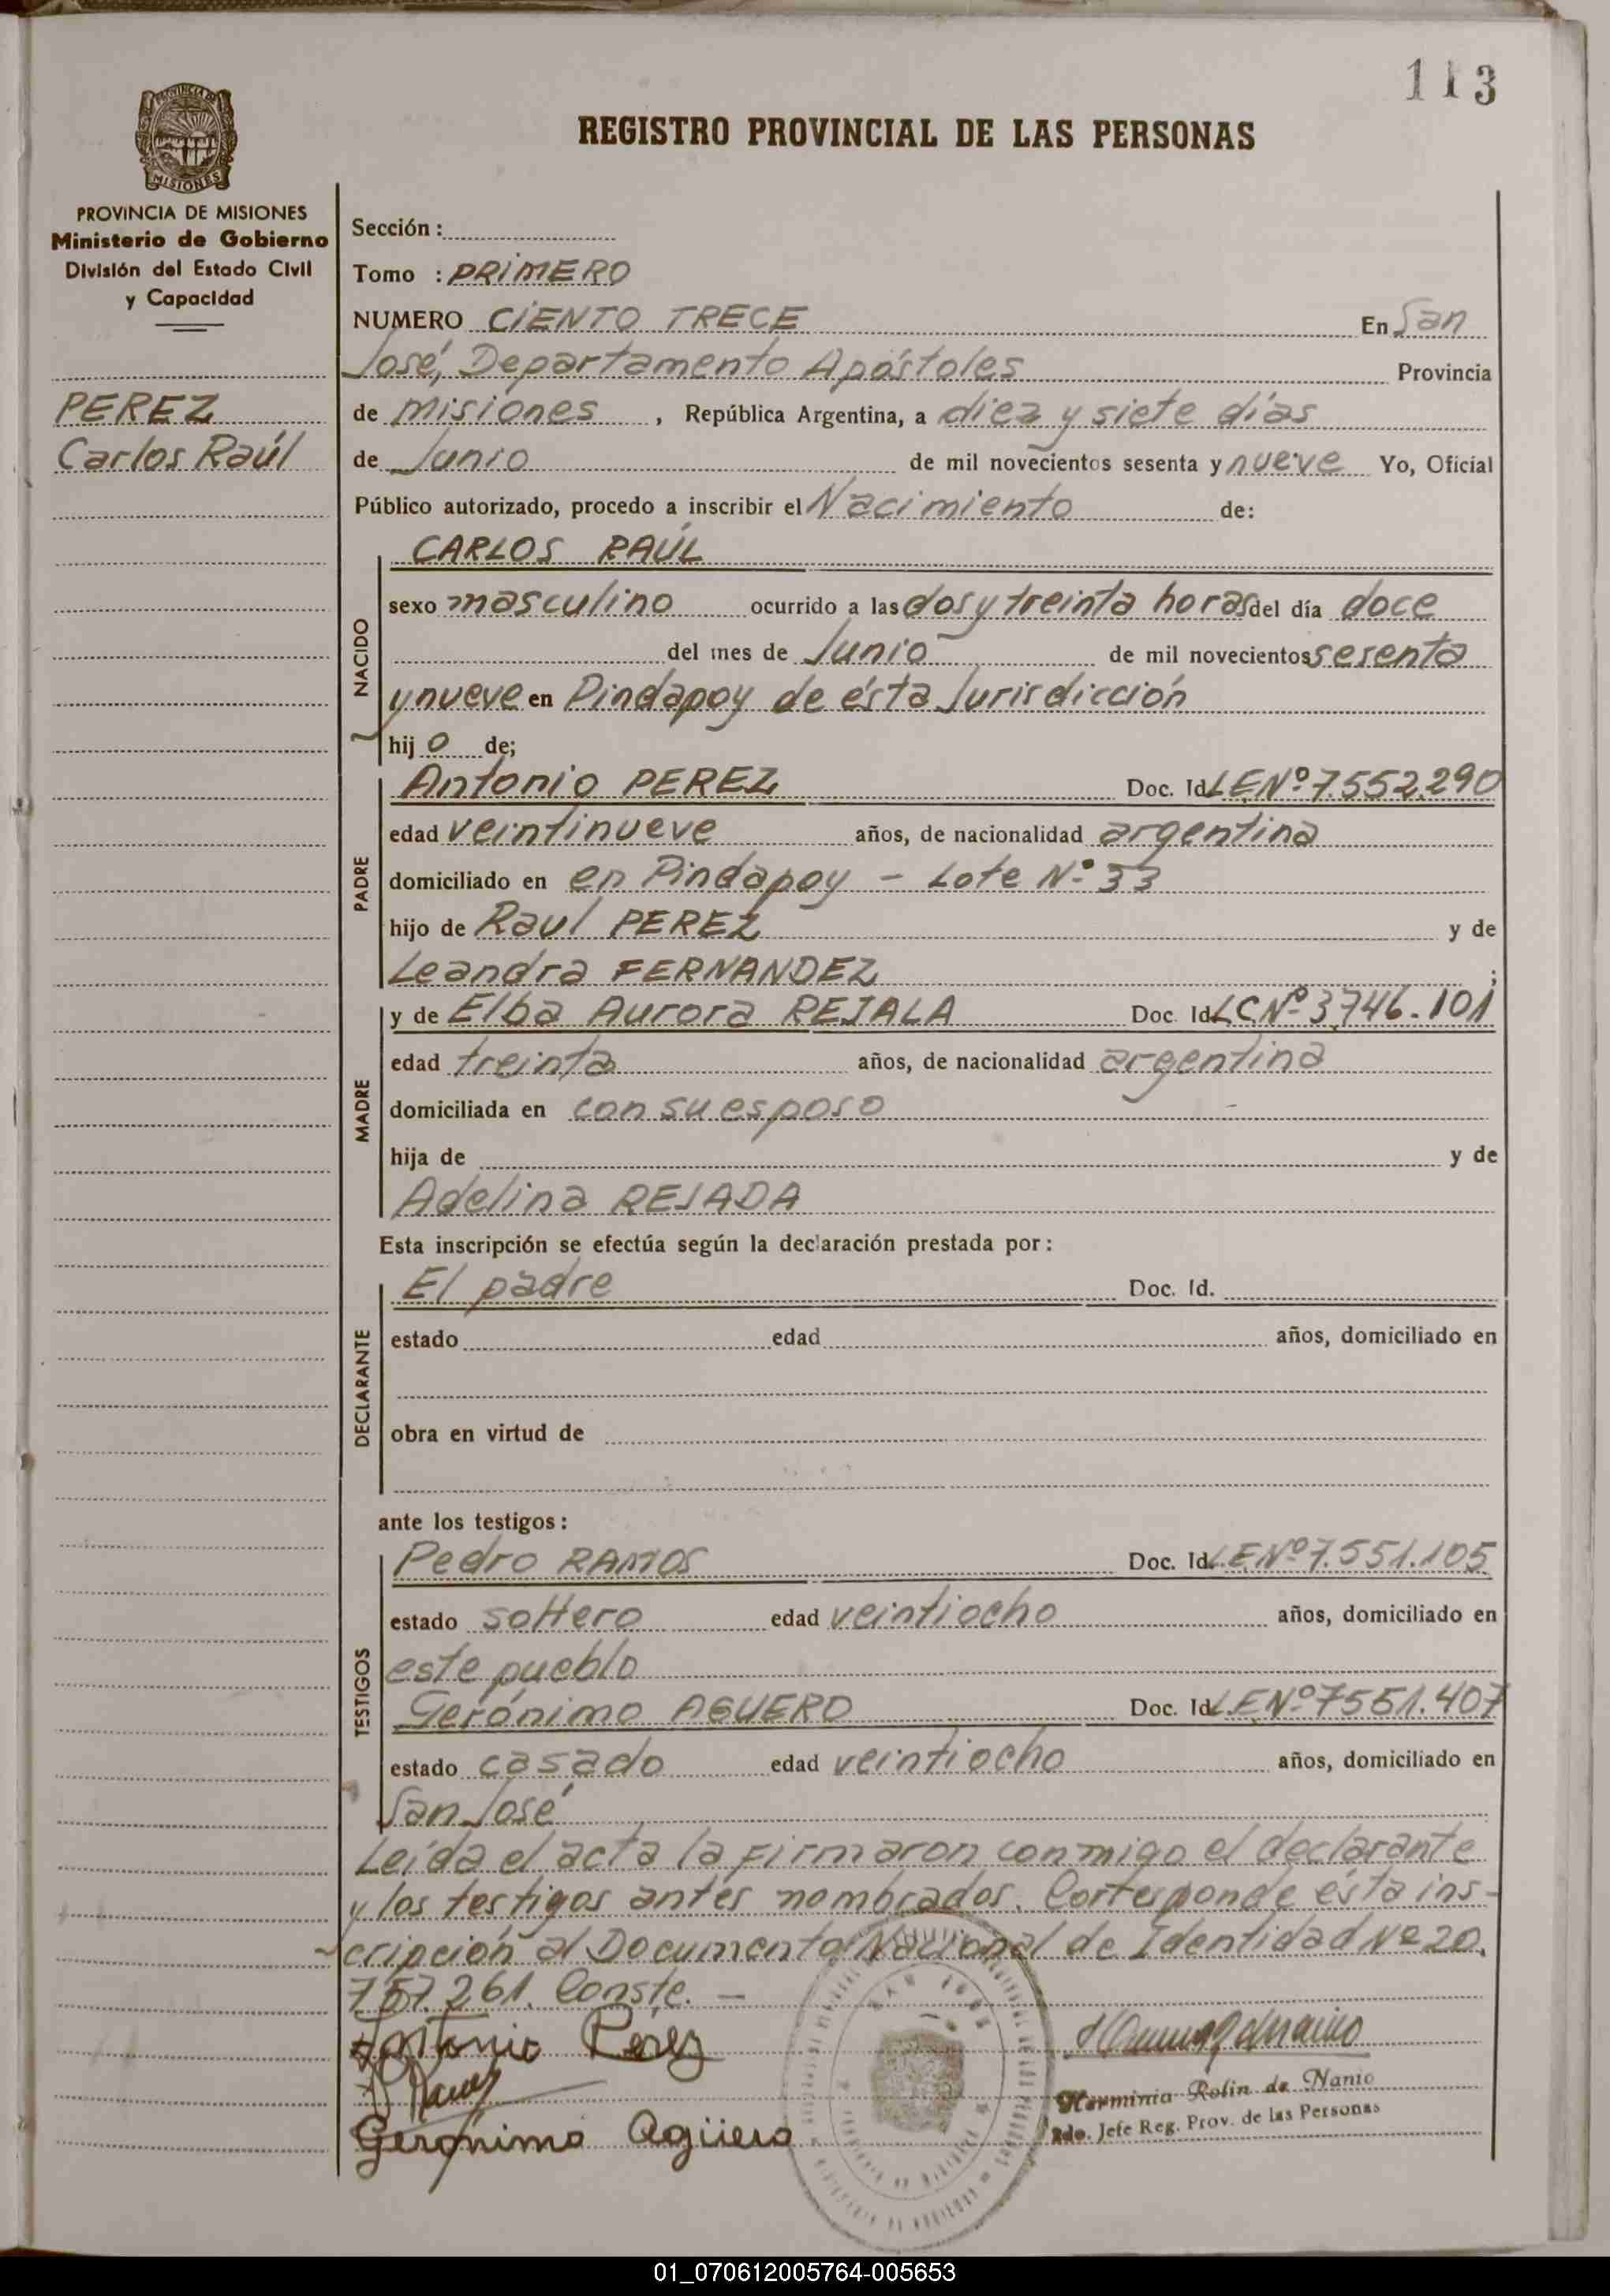 113
REGISTRO PROVINCIAL DE LAS PERSONAS
MISIONES
PROVINCIA DE MISIONES
Ministerio de Gobierno
División del Estado Civil
y Capacidad
PEREZ
Carlos Raúl
Sección :
Tomo : PRIMERO
NUMERO CIENTO TRECE En San
José, Departamento Apóstoles Provincia
de Misiones , República Argentina, a diez y siete días
de Junio de mil novecientos sesenta y nueve Yo, Oficial
Público autorizado, procedo a inscribir el Nacimiento de:
NACIDO
CARLOS RAÚL
sexo masculino ocurrido a las dos y treinta horas del día doce
del mes de Junio de mil novecientos sesenta
y nueve en Pindapoy de ésta Jurisdicción
hij o de;
PADRE
Antonio PEREZ Doc. Id. LE Nº 7.552.290
edad veintinueve años, de nacionalidad argentina
domiciliado en en Pindapoy - Lote Nº 33
hijo de Raul PEREZ y de
Leandra FERNANDEZ ;
MADRE
y de Elba Aurora REJALA Doc. Id. LC Nº 3.746.101
edad treinta años, de nacionalidad argentina
domiciliada en con su esposo
hija de y de
Adelina REJADA
Esta inscripción se efectúa según la declaración prestada por :
DECLARANTE
El padre Doc. Id.
estado edad años, domiciliado en
obra en virtud de
ante los testigos :
TESTIGOS
Pedro RAMOS Doc. Id. LE Nº 7.551.105
estado soltero edad veintiocho años, domiciliado en
este pueblo
Gerónimo AGUERO Doc. Id. LE Nº 7551.407
estado casado edad veintiocho años, domiciliado en
San José
Leída el acta la firmaron conmigo el declarante
y los testigos antes nombrados. Corresponde ésta ins-
cripción al Documento Nacional de Identidad Nº 20.
757.261. Conste. -
Antonio Perez
Gerónimo Agüero
Herminia Rolin de Nanio
2do. Jefe Reg. Prov. de las Personas
SAN JOSE
01_070612005764-005653